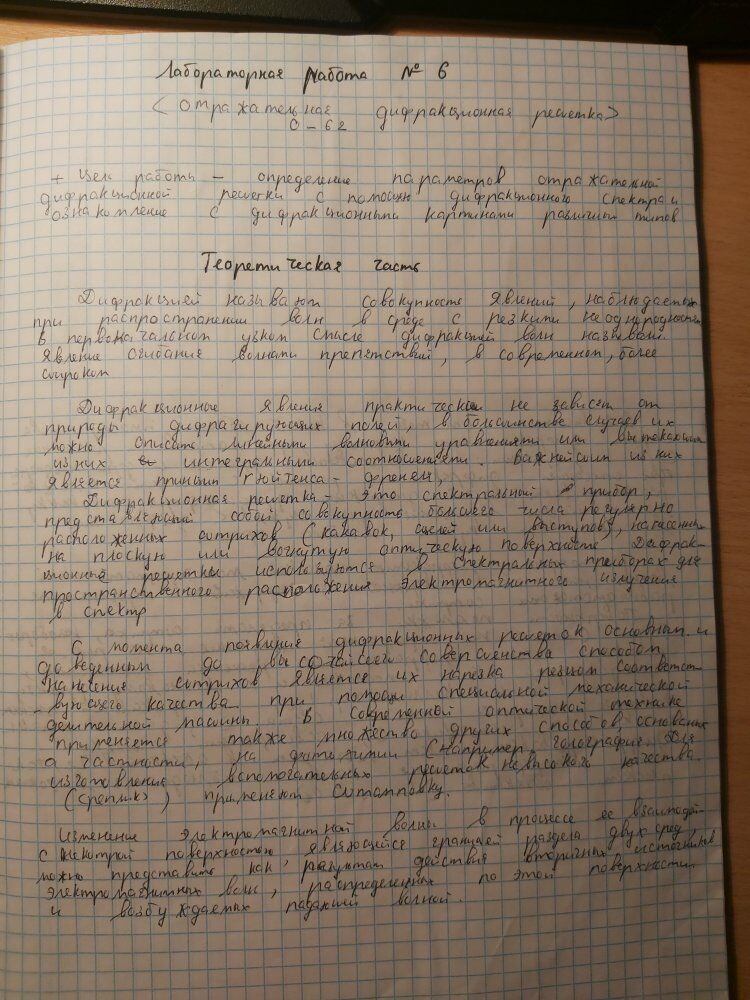 Лабораторная работа № 6
<Отражательная дифракционная решетка>
О-62
+ Цель работы – определение параметров отражательной
дифракционной решетки с помощью дифракционного спектра и
ознакомление с дифракционными картинами различн типов
Теоретическая часть
Дифракцией называют совокупность явлений, наблюдаемых
при распространении волн в среде с резкими неоднородностями
В первоначальном узком смысле дифракцией волн называли
явление огибания волнами препятствий, в современном, более
широком
Дифракционные явления практически не зависят от
природы дифрагирующих полей, в большинстве случаев их
можно описать линейными волновыми уравнениями или вытекающими
из них интегральными соотношениями. Важнейшим из них
является принцип Гюйгенса-Френеля,
Дифракционная решетка – это спектральный прибор,
представляющий собой совокупность большого числа регулярно
расположенных штрихов (канавок, щелей или выступов), нанесенных
на плоскую или вогнутую оптическую поверхность Дифрак-
ционные решетки используются в спектральных приборах для
пространственного расположения электромагнитного излучения
в спектр
С момента появления дифракционных решеток основным и
доведенным до высочайшего совершенства способом
нанесения штрихов является их нарезка резцом соответст-
-вующего качества при помощи специальной механической
делительной машины. В современный оптической технике
применяется также множество других способов основаных
а частности, на фотохимии (например, голография. Для
изготовления вспомогательных решеток невысокого качества.
(реплик) применяют штамповку.
Изменение электромагнитной волны в процессе ее взаимодей-
с некотрой поверхностью, являющейся границей раздела двух сред,
можно представить как, результат действия вторичных источников
электромагнитных волн, распределенных по этой поверхности
и возбуждаемых падающей волной.